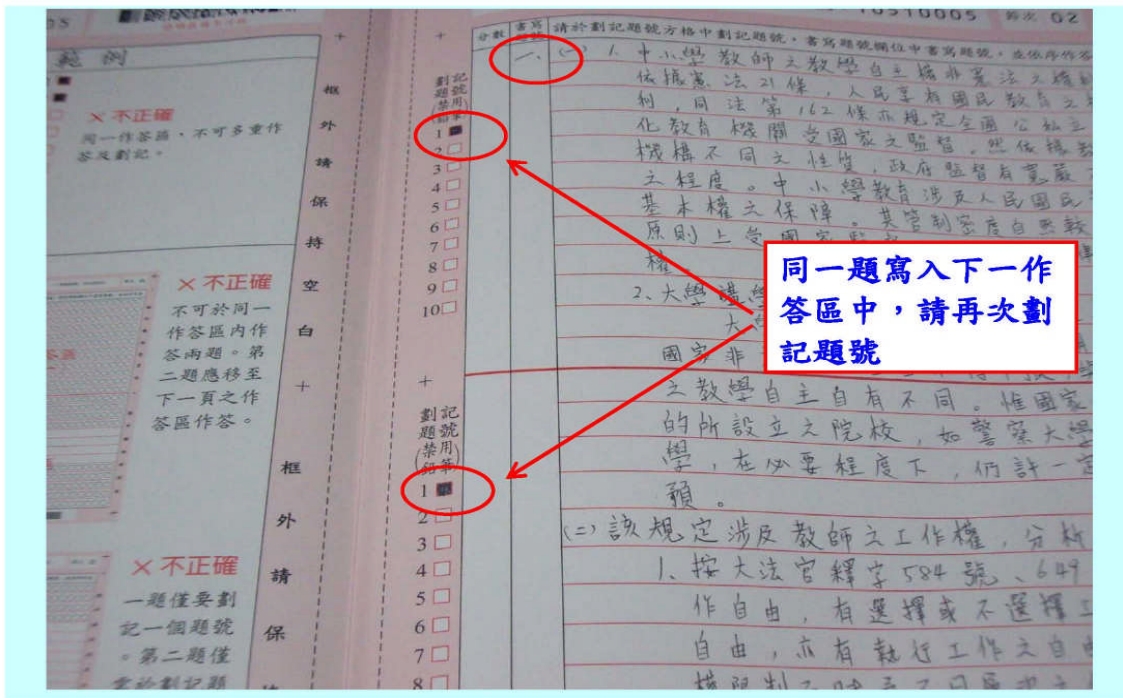 範例
×不正確
同一作答區，不可多重作
答及劃記。
×不正確
不可於同一
作答區內作
答兩題。第
二題應移至
下一頁之作
答區作答。
×不正確
一題僅要劃
記一個題號
。第二題僅
框
外
請
保
持
空
白
框
外
請
保
劃記
題號
(禁用
鉛筆)
1
2
3
4
5
6
7
8
9
10
劃記
題號
(禁用
鉛筆)
1
2
3
4
5
6
7
8
10510005 節次 02
分數
書寫
題號
請於劃記題號方格中劃記題號，書寫題號欄位中書寫題號，並依序作答
一、(一) 1. 中小學教師之教學自主權非憲法之權利
依據憲法21條，人民享有國民教育之權
利，同法第162條亦規定全國公私立
化教育機關受國家之監督，然依據教
機構不同之性質，政府監督有寬嚴
之程度。中小學教育涉及人民國民
基本權之保障。其管制密度自然較
原則上受國家監
權
2、大學講學
大
國家非
之教學自主自有不同。惟國家
的所設立之院校，如警察大學
學，在必要程度下，仍許一定
預。
(二)該規定涉及教師之工作權，分析
1、按大法官釋字584號、649
作自由，有選擇或不選擇工
自由，亦有執行工作之自由
同一題寫入下一作
答區中，請再次劃
記題號